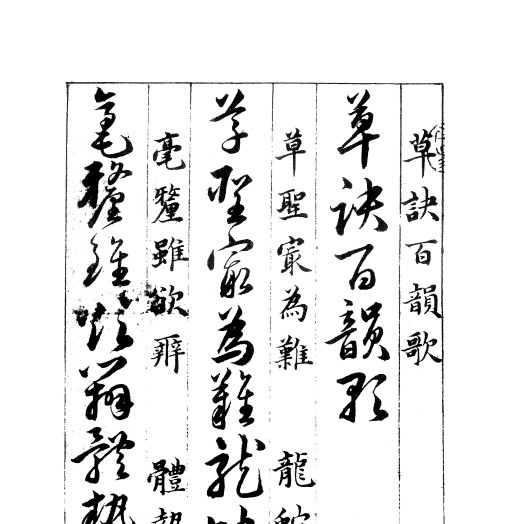 草訣百韻歌
草訣百韻歌
草聖㝡為難 龍蛇
草聖㝡為難龍
毫釐雖欲辨 體勢
毫釐雖欲辨體勢